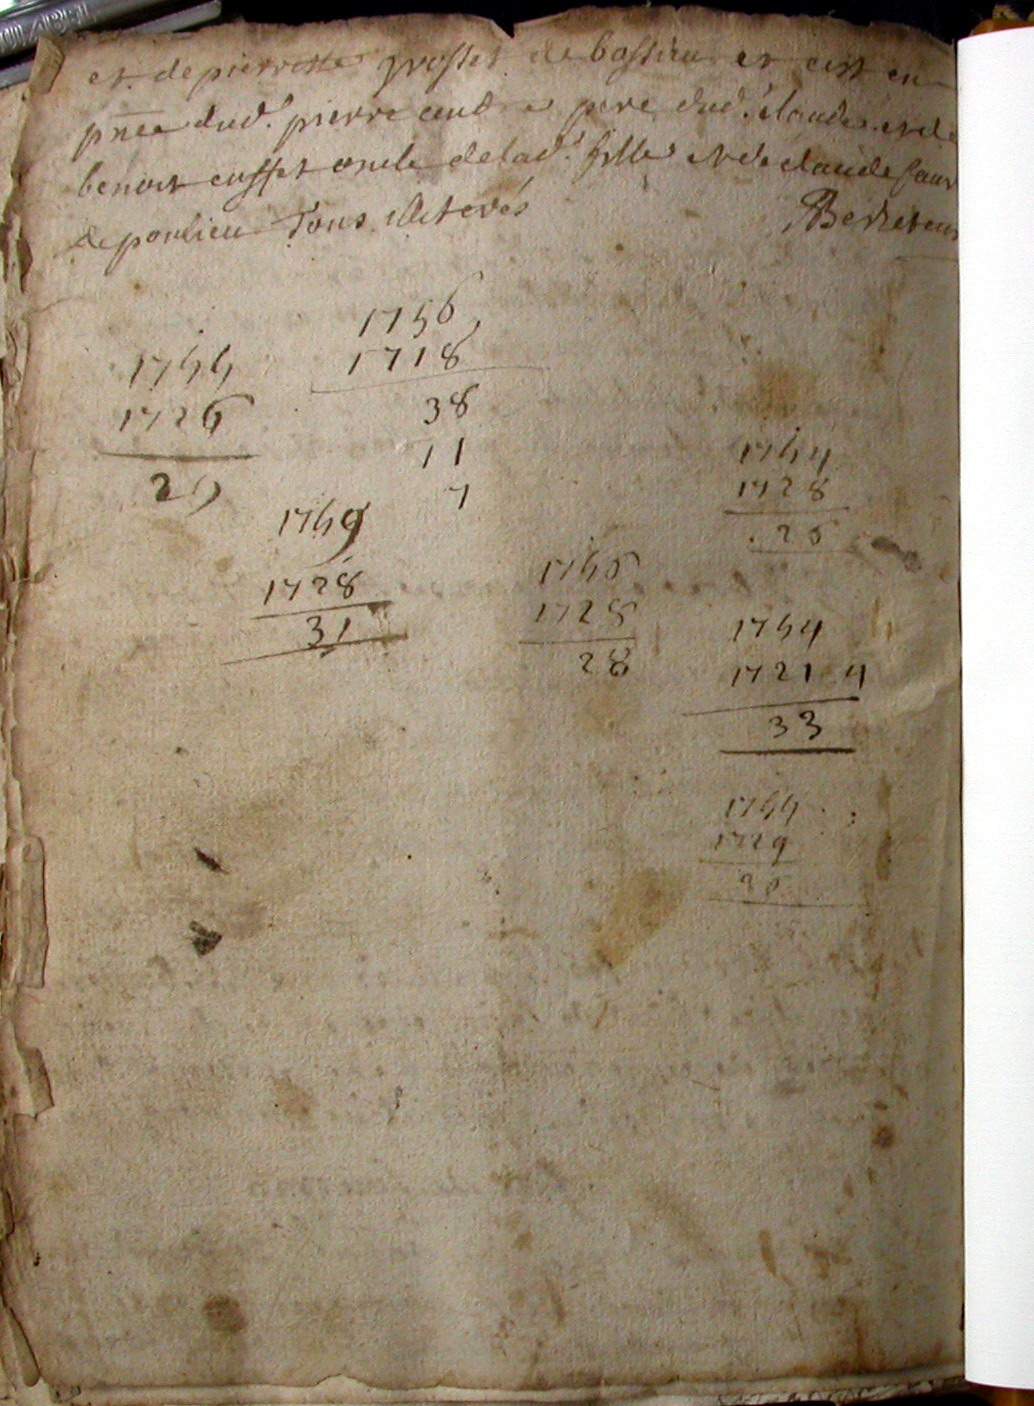 et de pierrette grosset de bossieu et c'est en
pnce dud. pierre pere dud. claude et de
benoit cusset oncle de lad. fille et de claude faur
de ponlieu Tous illeterés
1756
1718
38
11
7
1755
1726
29
1759
1728
31
1754
1728
26
1756
1728
28
1754
1721 4
33
1755
1729
26